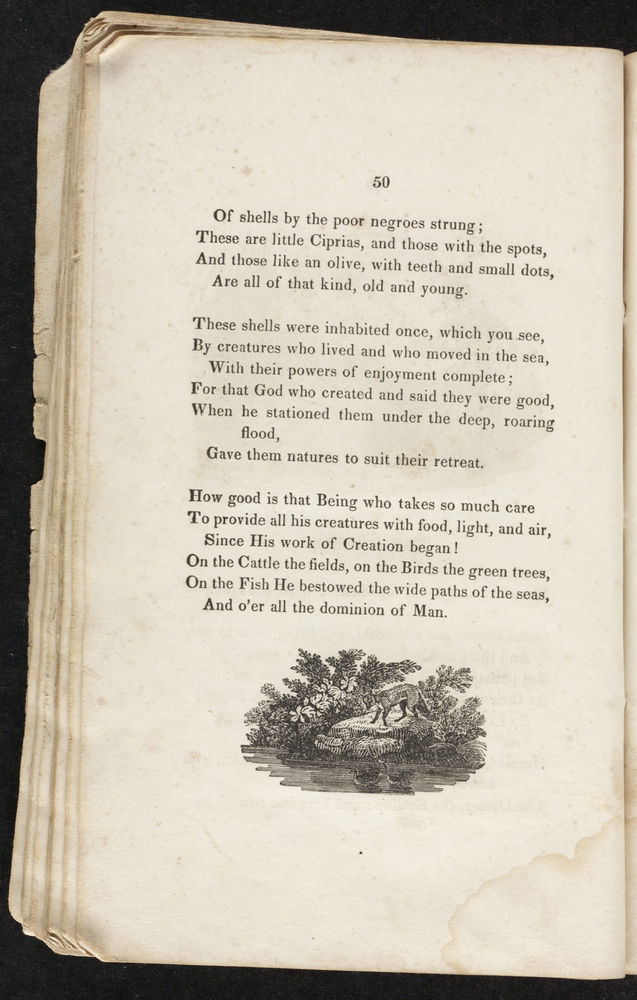 50
Of shells by the poor negroes strung;
These are little Ciprias, and those with the spots,
And those like an olive, with teeth and small dots,
Are all of that kind, old and young.
These shells were inhabited once, which you see,
By creatures who lived and who moved in the sea,
With their powers of enjoyment complete;
For that God who created and said they were good,
When he stationed them under the deep, roaring
flood,
Gave them natures to suit their retreat.
How good is that Being who takes so much care
To provide all his creatures with food, light, and air,
Since His work of Creation began!
On the Cattle the fields, on the Birds the green trees,
On the Fish He bestowed the wide paths of the seas,
And o'er all the dominion of Man.